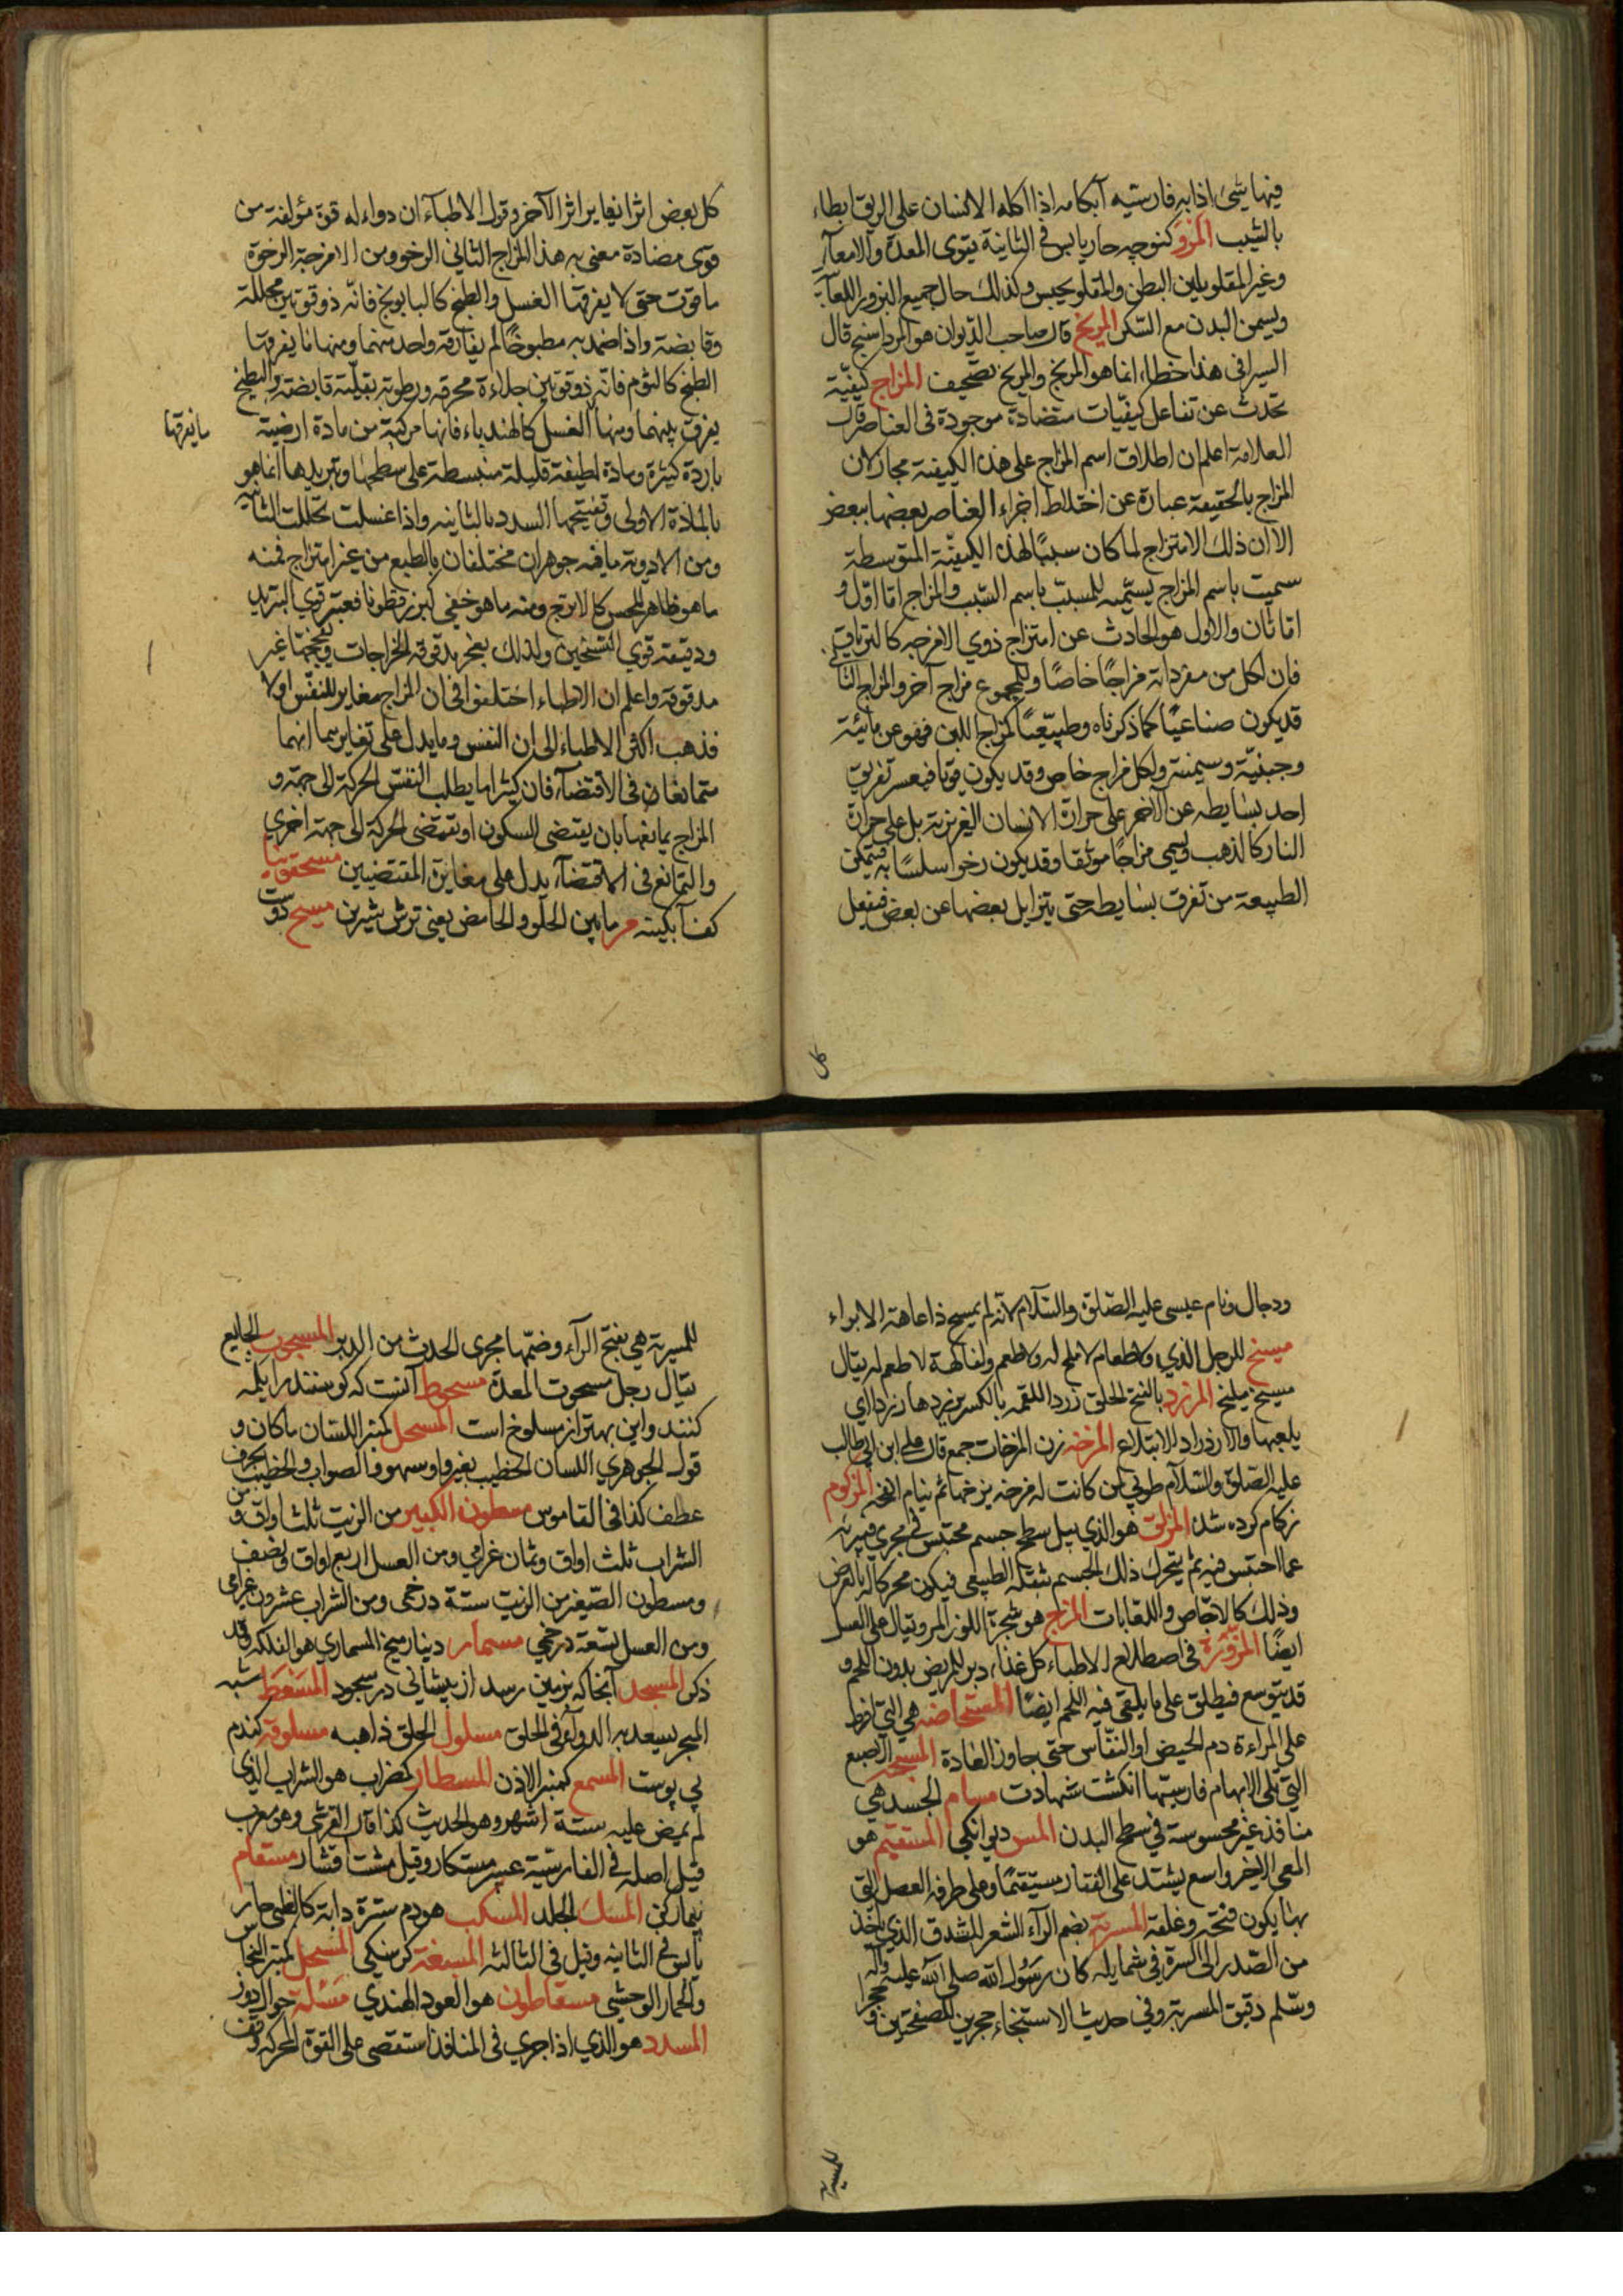 فيها شيئ اذابه فارسيّه آبكامه اذا اكله الانسان على الريق ابطاء
بالشيب المرْو كنوچه حار يابس فى الثانية يقوى المعدة والامعآء
وغير المقلو يلين البطن والمقلو يحبس وكذلك حال جميع البزور اللعابية
ويسمن البدن مع السّكر المريخ قال صاحب الديوان هو المرداسنج قال
السيرافى هذا خطاء انما هو المريخ والمريخ تصحيف المزاج كيفيّة
تحدث عن تفاعل كيفيّات متضادة موجودة فى العناصر قال
العلامة اعلم ان اطلاق اسم المزاج على هذه الكيفية مجاز لان
المزاج بالحقيقة عبارة عن اختلاط اجزاء العناصر بعضها ببعض
الا ان ذلك الامتزاج لما كان سببًا لهذه الكيفيّة المتوسطة
سميت باسم المزاج يسمّيه للمسبّب باسم السّبب والمزاج امّا اوّل و
امّا ثان والاول هو الحادث عن امتزاج ذوي الامزجه كالترياق
فان لكل من مفرداته مزاجًا خاصًا وللمجموع مزاج آخر والمزاج الثانى
قد يكون صناعيًّا كما ذكرناه وطبيعيًّا كمزاج اللبن فهو عن مائيّة
وجبنيّة وسمنية ولكل مزاج خاص وقد يكون قويّا فيعسر تفريق
احد بسايطه عن الآخر على حرارة الانسان الغريزية بل على حرارة
النار كالذهب ويسمى مزاجًا موثقا وقد يكون رخوا سلسًا به يتمكن
الطبيعة من تفرق بسايطه حتى يتزايل بعضها عن بعض فيفعل
كل
كل بعض اثرا يغاير اثر الآخر وقول الاطباء ان دواء له قوة مؤلفة من
قوى مضادة معنى به هذا المزاج الثانى الرخو ومن الامزجة الرخوة
ما قوت حتى لا يفرقها الغسل والطبخ كالبابونج فانّه ذو قوتين محللة
وقابضة واذا ضمد به مطبوخًا لم يفارقه واحد منهما ومنها ما يفرقها
الطبخ كالثوم فانّه ذو قوتين جلاءة محرقه ورطوبه ثقيلة قابضة والطبخ
يفرق بينهما ومنها الغسل كالهندباء فانها مركبة من مادة ارضية
ما يفرقها
باردة كثيرة ومادة لطيفة قليلة منبسطة على سطحها وتبريدها انما هو
بالمادّة الاولى وتفتيحها السدد بالثانيه واذا غسلت تحللت الثانيه
ومن الادوية ما فيه جوهران مختلفان بالطبع من غير امتزاج فمنه
ما هو ظاهر للحس كالاترج ومنه ما هو خفى كبزر قطونا فقشره قوي التبريد
ودقيقه قوي التسخين ولذلك يفجر مدقوقه الخراجات ويفجتها غير
مدقوقه واعلم ان الاطباء اختلفوا فى ان المزاج مغاير للنفس او لا
فذهب اكثر الاطباء الى ان النفس وما يدل على تغايرهما انهما
متمانعان فى الاقتضآء فان كثيرا ما يطلب النفس الحركة الى جهة و
المزاج يمانعها بان يقتضى السكون او تقتضى الحركة الى جهة اخرى
والتمانع فى الاقتضآء يدل على مغايرة المقتضيين مسحقونيا
كف آبكينه مز ما بين الحلو والحامض يعنى ترش شيرين مسيح دوست
ودجال ونام عيسى عليه الصّلوة والسّلام لانّه لم يمسح ذا عاهة الا براء
مسيخ للرجل الذي ولطعام لا ملح له ولا طعم ولفاكهة لا طعم له يقال
مسيخ مليخ المزرد بالفتح الحلق زرد اللقمه بالكسر يزردها زردا اي
بلعها والازدراد الابتلاع المزخه زن المزخات جمع قال على ابن ابى طالب
عليه الصّلوة والسّلام طوبى لمن كانت له مزخه يزخها ثم ينام الفخه المزكوم
زكام كرده شده المزلق هو الذي يبل سطح جسم محتبس فى مجرى فيبرئه
عما احتبس فيه ثم يتحرك ذلك الجسم بثقله الطبيعى فيكون محركا له بالعرض
وذلك كالاجاص واللعابات المزاج هو شجرة اللوز المر ويقال على العسل
ايضًا المزوّرة فى اصطلاح الاطباء كل غذاء دبر للمريض بدون اللحم و
قد يتوسع فيطلق على ما يلقى فيه اللحم ايضًا المستحاضه هى التى افرط
على المراءة دم الحيض او النفاس حتى جاوز العادة المسبحه الاصبع
التى تلى الابهام فارسيّها انكشت شهادت مسام الجسد هى
منافذ غير محسوسة فى سطح البدن المس ديوانكى المستقيم هو
المعى الاخير واسع يشتد على الفقار مستيقمًا وعلى طرفه العضل التى
بها يكون فتحه وغلقه المسربة بضم الرآء الشعر المستدق الذي ياخذ
من الصّدر الى السرّة فى شمايله كان رسول الله صلى الله عليه وآله
وسلّم دقيق المسربة وفى حديث الاستنجاء حجرين للصفحتين و حجرا
للمسربة
للمسربة هى بفتح الرآء وضمّها مجرى الحدث من الدبر المسحوت الجايع
يقال رجل مسحوت المعدة مسحوط آنست كه كوسفند را بكله
كنند واين بهتر از مسلوخ است المسحل كمنبر اللسان ما كان و
قول الجوهري اللسان الخطيب بغير واو سهو والصواب والخطيب بحرف
عطف كذا فى القاموس مسطرون الكبير من الزيت ثلث اواق و من
الشراب ثلث اواق وثمان غرامى ومن العسل اربع اواق ونصف
ومسطرون الصّغير من الزيت ستة درخمى ومن الشراب عشرون غرامى
ومن العسل تسعة درخمى مسمار دينار ميخ المسمارى هو الفلكه وقد
ذكر المسجد آنجا كه بزمين رسد از پيشانى در سجود المسْعَط شبه
المبجر يسعد به الدوآء فى الحلق مسلول الحلق ذاهبه مسلوقه كندم
بى پوست المسمع كمنبر الاذن المسطار كمضراب هو الشراب الذى
لم يمض عليه ستة اشهر وهو الحديث كذا قال القرشى وهو معرب
قيل اصله فى الفارسية مستكار وقيل مشت افشار مستقام
بيمار كن المسك الجلد المسكب هو دم سترة دابة كالظبى حار
يابس فى الثانيه وقيل فى الثالثه المسغبة كرسنكى المسحل كمنبر
والحمار الوحشى مسقاطون هو العود الهندى مسئلة
المسدد هو الذي اذا جرى فى المنافذ استقصى على القوة المحركه